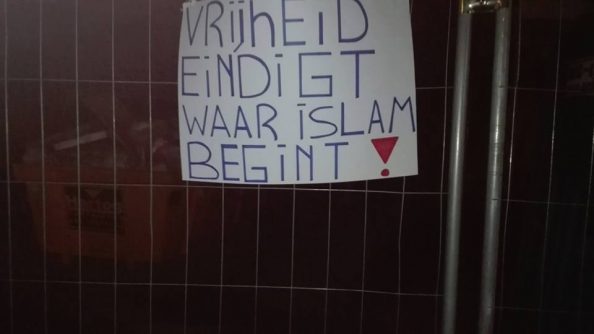 VRIJHEID
EINDIGT
WAAR ISLAM
BEGINT !